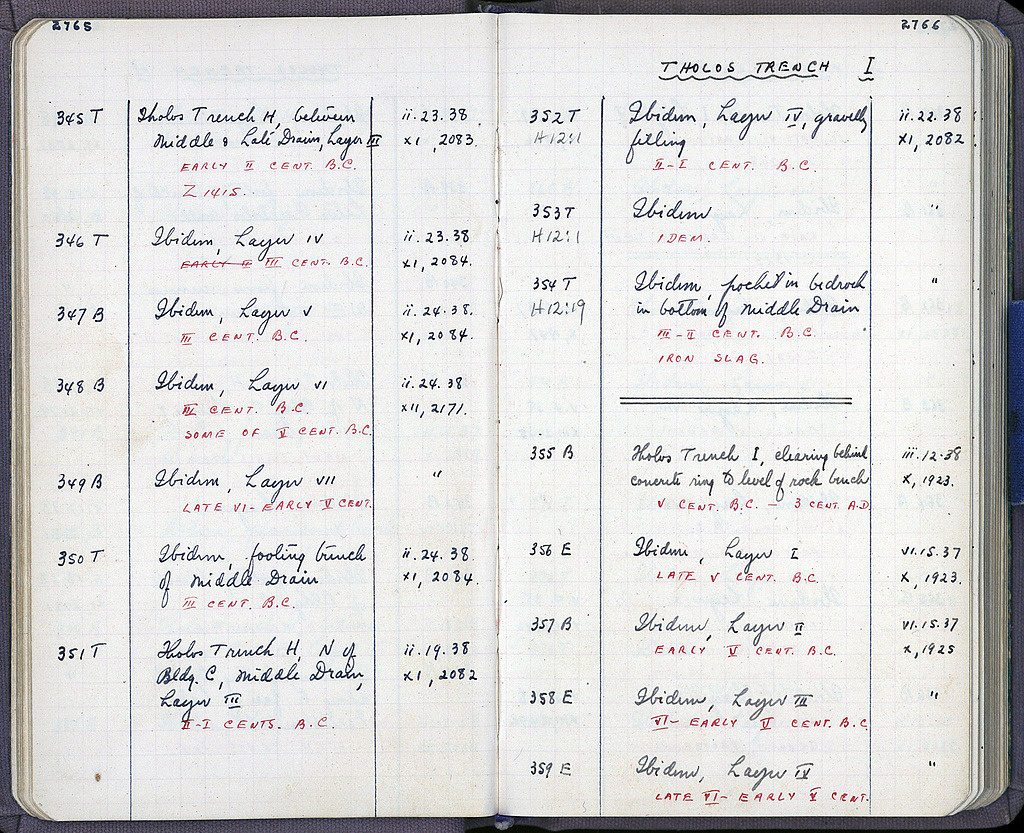 2765
345 T Tholos Trench H, between ii.23.38
Middle & Late Drain, Layer III XI, 2083.
EARLY II CENT. B.C.
Z 1415.
346 T Ibidem, Layer IV ii.23.38
EARLY II III CENT. B.C. XI, 2084.
347 B Ibidem, Layer V ii.24.38.
III CENT. B.C. XI, 2084.
348 B Ibidem, Layer VI ii.24.38
IV CENT. B.C. XII, 2171.
SOME OF V CENT. B.C.
349 B Ibidem, Layer VII "
LATE VI - EARLY V CENT.
350 T Ibidem, footing trench ii.24.38.
of Middle Drain XI, 2084.
III CENT. B.C.
351 T Tholos Trench H, N of ii.19.38
Bldg. C, Middle Drain, XI, 2082
Layer III
II-I CENTS. B.C.
2766
THOLOS TRENCH I
352 T Ibidem, Layer IV, gravelly ii.22.38
H 12:1 filling XI, 2082
II-I CENT. B.C.
353 T Ibidem "
H 12:1 IDEM.
354 T Ibidem, pocket in bedrock "
H 12:19 in bottom of Middle Drain
III-II CENT. B.C.
IRON SLAG.
355 B Tholos Trench I, clearing behind iii.12.38
concrete ring to level of rock bench X, 1923.
V CENT. B.C. - 3 CENT. A.D.
356 E Ibidem, Layer I VI.15.37
LATE V CENT. B.C. X, 1923.
357 B Ibidem, Layer II VI.15.37
EARLY V CENT. B.C. X, 1925
358 E Ibidem, Layer III "
VI - EARLY V CENT. B.C.
359 E Ibidem, Layer IV "
LATE VI - EARLY V CENT.